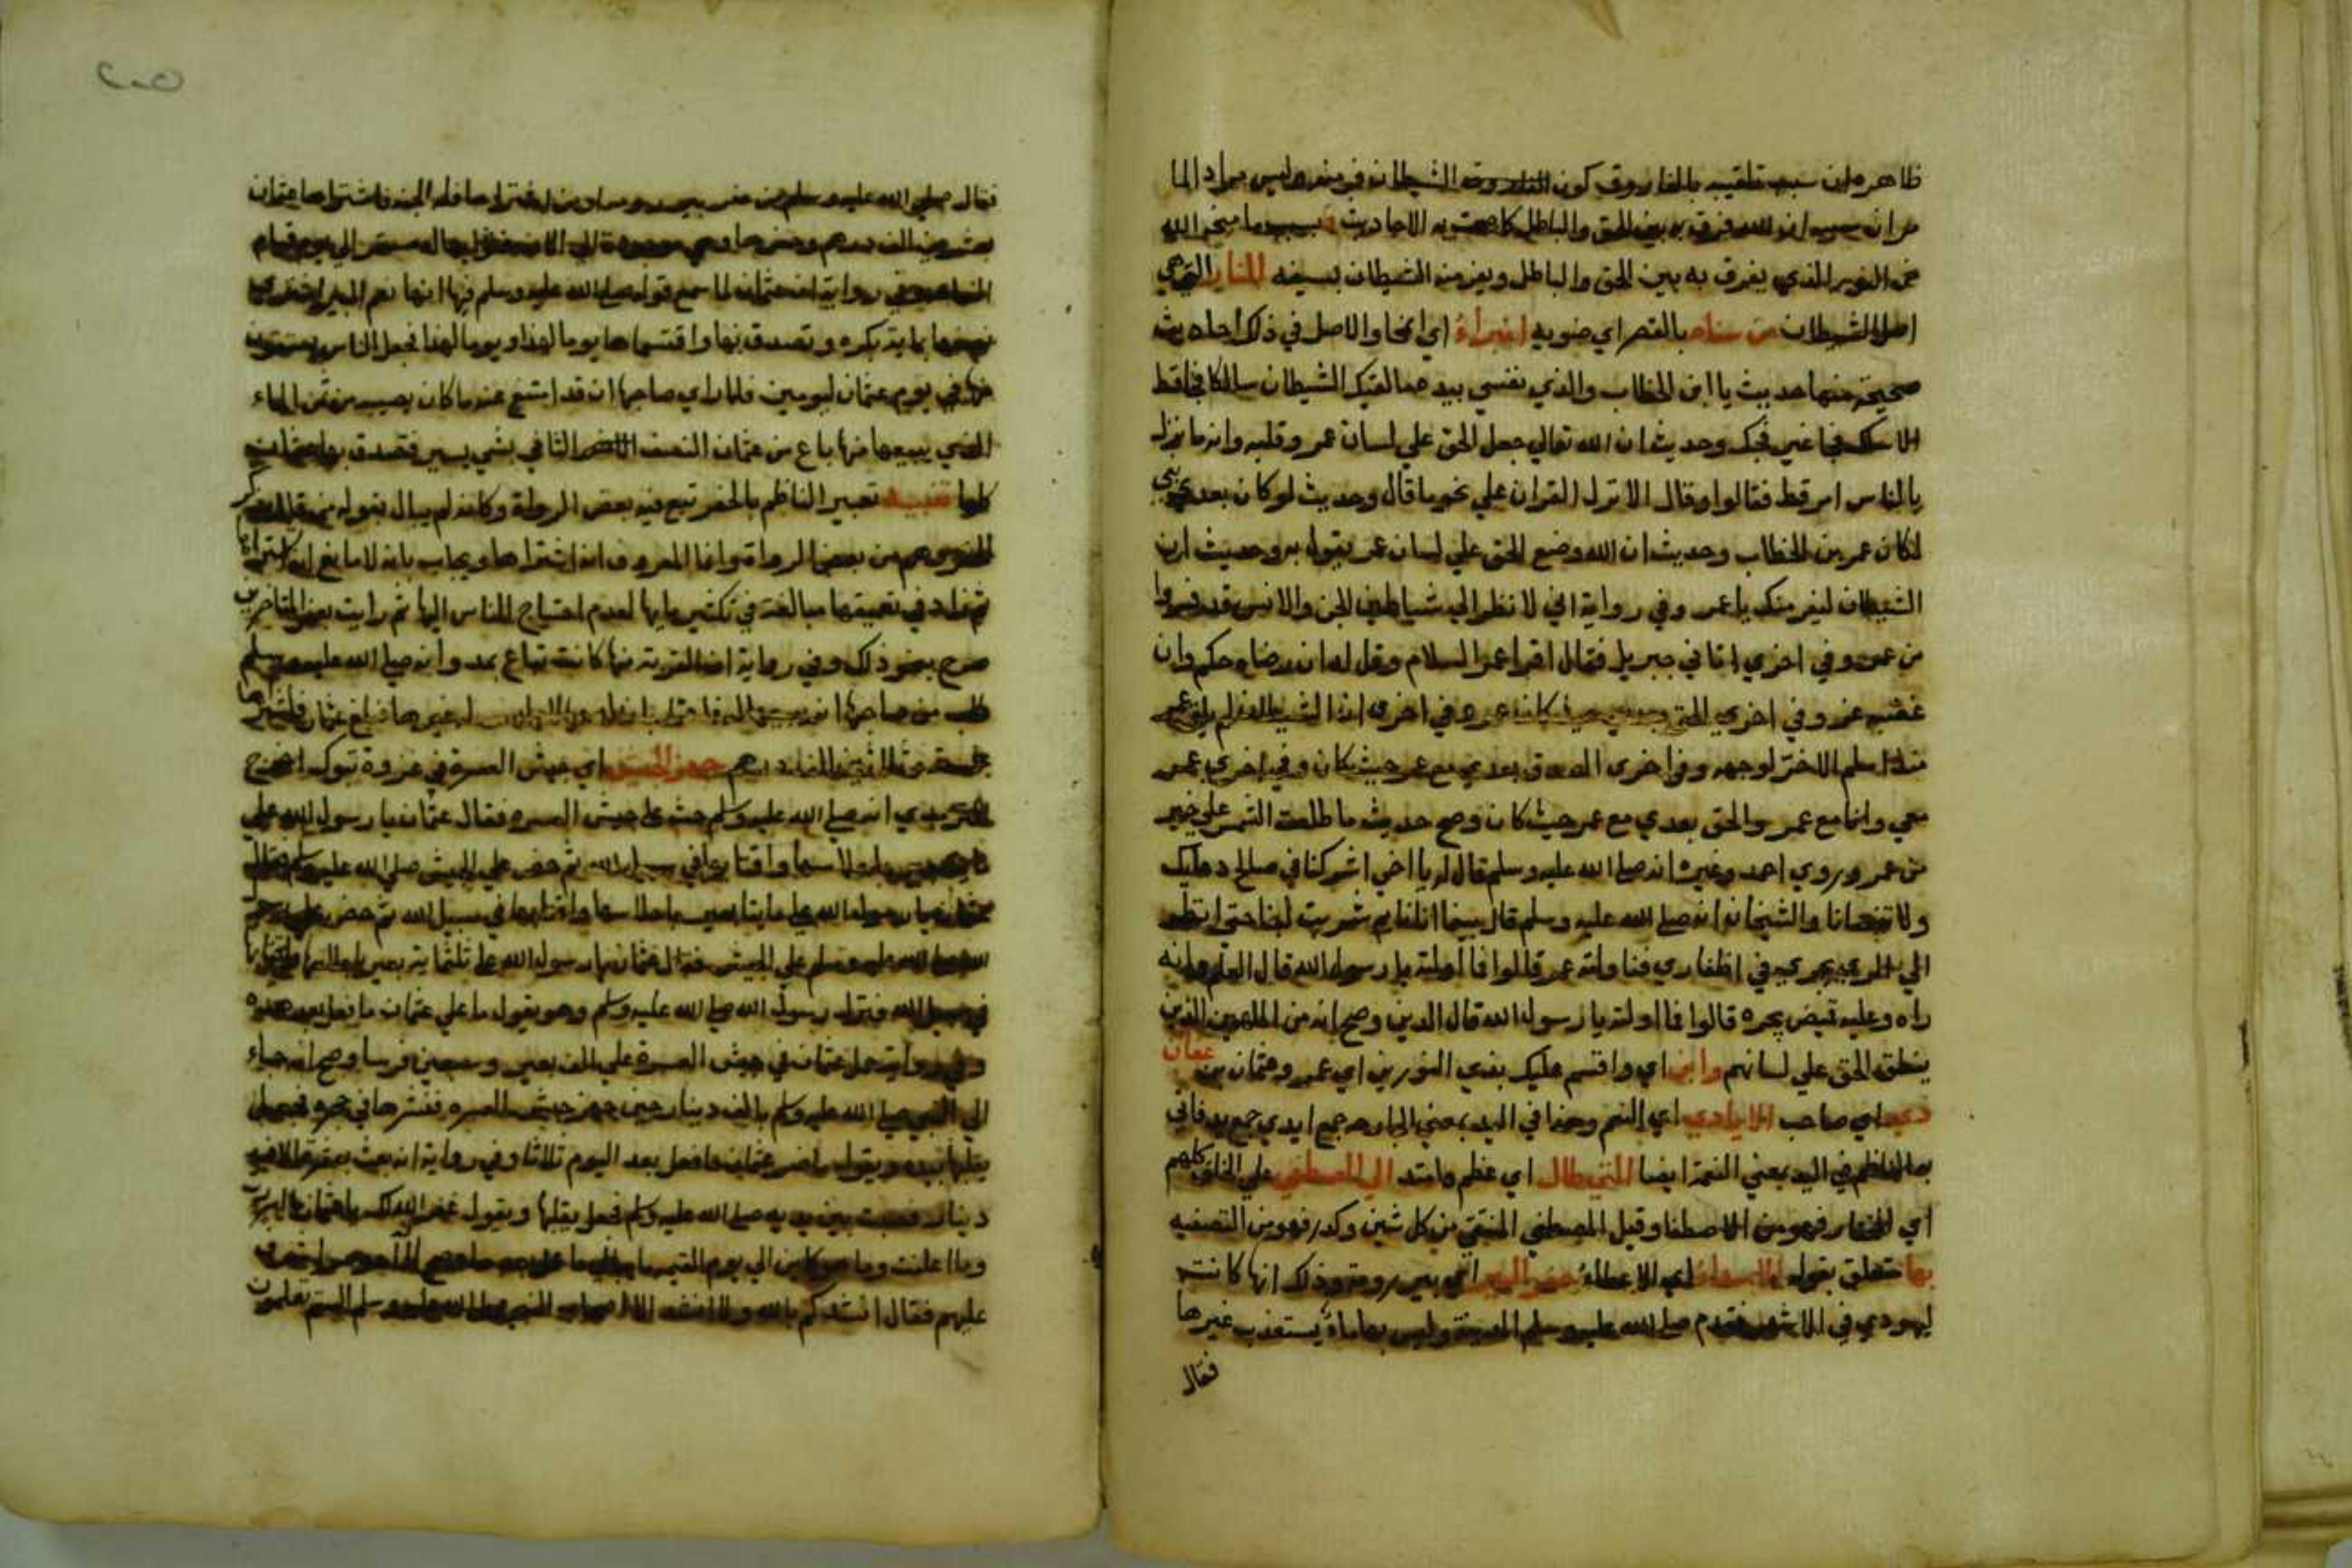 ظاهره ان سبب تلقيبه بالفاروق كون الشيطان فر منه وليس مراد الما
مر ان سببه ان الله فرق به بين الحق والباطل كما صحت به الاحاديث
النور الذي يفرق به بين الحق والباطل ويفر منه الشيطان بسيفه النار التي هي
اصل الشيطان من سناه بالقصر اي ضوءه انبراء اي انمحا والاصل في ذلك احاديث
صحيحة منها حديث يا ابن الخطاب والذي نفسي بيده ما لقيك الشيطان سالكا فجا قط
الا سلك فجا غير فجك وحديث ان الله تعالى جعل الحق علي لسان عمر وقلبه وانه ما نزل
بالناس امر قط فقالوا وقال الا نزل القران علي نحو ما قال وحديث لو كان بعدي نبي
لكان عمر بن الخطاب وحديث ان الله وضع الحق علي لسان عمر يقول به وحديث ان
الشيطان ليفر منك يا عمر وفي رواية اني لانظر الي شياطين الجن والانس قد فروا
من عمر وفي اخري اتاني جبريل فقال اقرا عمر السلام وقل له ان رضاه حكم وان
غضبه عز وفي اخري الحق
منذ اسلم الا خر لوجهه وفي اخرى الصدق بعدي مع عمر حيث كان وفي اخري عمر
معي وانا مع عمر والحق بعدي مع عمر حيث كان وصح حديث ما طلعت الشمس علي خير
من عمر وروي احمد وغيره انه صلي الله عليه وسلم قال له يا اخي اشركنا في صالح دعائك
ولا تنسانا والشيخان انه صلي الله عليه وسلم قال بينا انا نايم شربت لبنا حتى انظر
الي الري يجري في اظفاري فناولته عمر قالوا فما اولته يا رسول الله قال العلم وانه
راه وعليه قميص يجره قالوا فما اولته يا رسول الله قال الدين وصح انه من الملهمين الذين
ينطق الحق علي لسانهم وابن اي واقسم عليك بذي النورين اي عمر وعثمان بن عفان
ذي اي صاحب الايادي اي النعم وهذا في اليد بمعني الجارحة جمع ايدي جمع يد فاتي
بها الناظم في اليد بمعني النعمة ايضا التي طال اي عظم وامتد الي المصطفي علي الخلق كلهم
اي المختار فهو من الاصطفا وقيل المصطفي المنقي من كل شين وكدر فهو من التصفيه
بها متعلق بقوله الاسداء اي الاعطاء حفر البير اي بير رومة وذلك انها كانت
ليهودي في الا فقدم صلي الله عليه وسلم المدينة وليس بها ماء يستعذب غيرها
فقال
فقال صلي الله عليه وسلم من حفر بير رومة او من اشتراها فله الجنة فاشتراها عثمان
بعشرين الف درهم وحفرها وهي موجودة الي الان
وفي رواية ان عثمان لما سمع قوله صلي الله عليه وسلم فيها انها نعم البير اشترى
نصفها بماية بكرة وتصدق بها واقتسماها يوما لهذا ويوما لهذا فجعل الناس يستقون
منها في يوم عثمان ليومين فلما راي صاحبها ان قد امتنع عنه ما كان يصيبه من ثمن الماء
الذي يبيعها منها باع من عثمان النصف الثاني بشي يسير فتصدق بها عثمان
كلها تنبيه تعبير الناظم بالحفر تبع فيه بعض الرواة وكانه لم يبال بقوله
وهم من بعض الرواة وانما المعروف انه اشتراها ويجاب بانه لا مانع انه اشتراها
ثم زاد في تعميقها مبالغة في تكثير مايها لعدم احتياج الناس اليها ثم رايت بعض المتاخرين
صرح بنحو ذلك وفي رواية ان القربة منها كانت تباع بمد وانه صلي الله عليه وسلم
طلب من صاحبها ان غيرها فبلغ عثمان فاشتراها
بخمسة وثلاثين الف درهم جهز الجيش اي جيش العسرة في غزوة تبوك اخرج
الترمذي انه صلي الله عليه وسلم حث علي جيش العسرة فقال عثمان يا رسول الله علي
ماية بعير باحلاسها واقتابها في سبيل الله ثم حض علي الجيش صلي الله عليه وسلم فقال
عثمان يا رسول الله علي مايتا بعير باحلاسها واقتابها في سبيل الله ثم حض
صلي الله عليه وسلم علي الجيش فقال عثمان يا رسول الله علي ثلثماية بعير باحلاسها واقتابها
في سبيل الله فنزل رسول الله صلي الله عليه وسلم وهو يقول ما علي عثمان ما فعل بعد هذه
وفي رواية حمل عثمان في جيش العسرة علي الف بعير وسبعين فرسا وصح انه جاء
الي النبي صلي الله عليه وسلم بالف دينار حين جهز جيش العسرة فنثرها في حجره فجعل
يقلبها بيده ويقول ما ضر عثمان ما فعل بعد اليوم ثلاثا وفي رواية انه بعث بعشرة الاف
دينار فصبت بين يديه صلي الله عليه وسلم فجعل يقلبها ويقول غفر الله لك يا عثمان ما اسررت
وما اعلنت وما هو كاين الي يوم القيمة ما يبالي ما عمل بعدها وصح
عليهم فقال انشدكم بالله ولا انشد الا اصحاب النبي صلي الله عليه وسلم الستم تعلمون